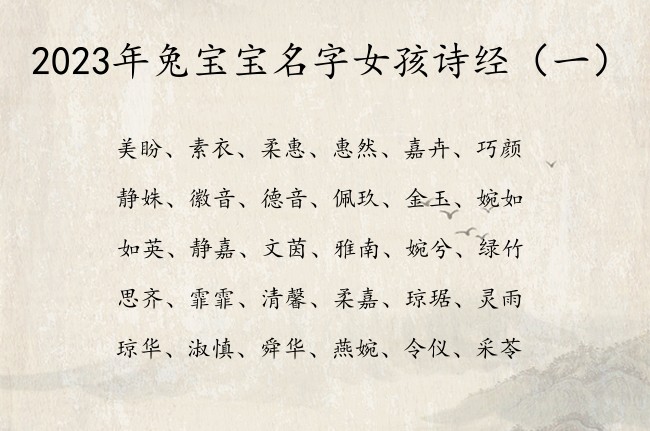 2023年兔宝宝名字女孩诗经（一）
美盼、素衣、柔惠、惠然、嘉卉、巧颜
静姝、徽音、德音、佩玖、金玉、婉如
如英、静嘉、文茵、雅南、婉兮、绿竹
思齐、霏霏、清馨、柔嘉、琼琚、灵雨
琼华、淑慎、舜华、燕婉、令仪、采苓